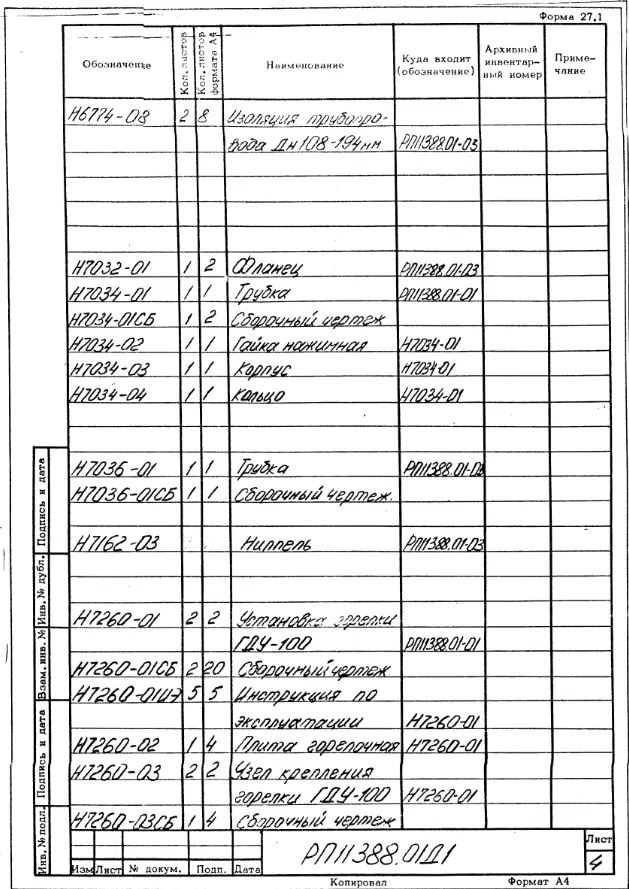 Форма 27.1
Обозначение Кол. листов Кол. листов формата А4 Наименование Куда входит (обозначение) Архивный инвентарный номер Примечание
Н6774-08 2 8 Изоляция трубопро-
вода Дн108-194мм РП11388.01-03
Н7032-01 1 2 Фланец РП11388.01-03
Н7034-01 1 1 Трубка РП11388.01-01
Н7034-01СБ 1 2 Сборочный чертеж
Н7034-02 1 1 Гайка нажимная Н7034-01
Н7034-03 1 1 Корпус Н7034-01
Н7034-04 1 1 Кольцо Н7034-01
Н7036-01 1 1 Трубка РП11388.01-03
Н7036-01СБ 1 1 Сборочный чертеж.
Н7162-03 Ниппель РП11388.01-03
Н7260-01 2 2 Установка горелки
ГДУ-100 РП11388.01-01
Н7260-01СБ 2 20 Сборочный чертеж
Н7260-01ИЭ 5 5 Инструкция по
эксплуатации Н7260-01
Н7260-02 1 4 Плита горелочная Н7260-01
Н7260-03 2 2 Узел крепления
горелки ГДУ-100 Н7260-01
Н7260-03СБ 1 4 Сборочный чертеж
Подпись и дата
Инв. № дубл.
Взам. инв. №
Подпись и дата
Инв. № подл.
Изм Лист № докум. Подп. Дата
РП11388.01Д1
Лист
4
Копировал Формат А4